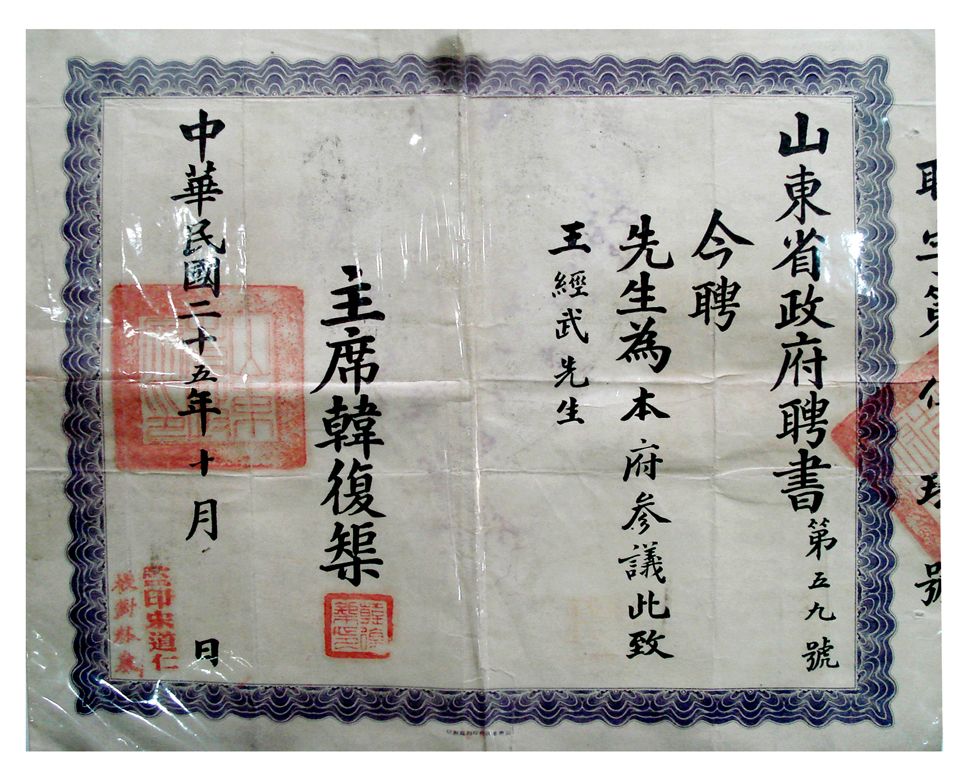 山東省政府聘書第五九號
今聘
先生為本府參議此致
王經武先生
主席韓復榘
中華民國二十五年十月 日
監印宋道仁
校對